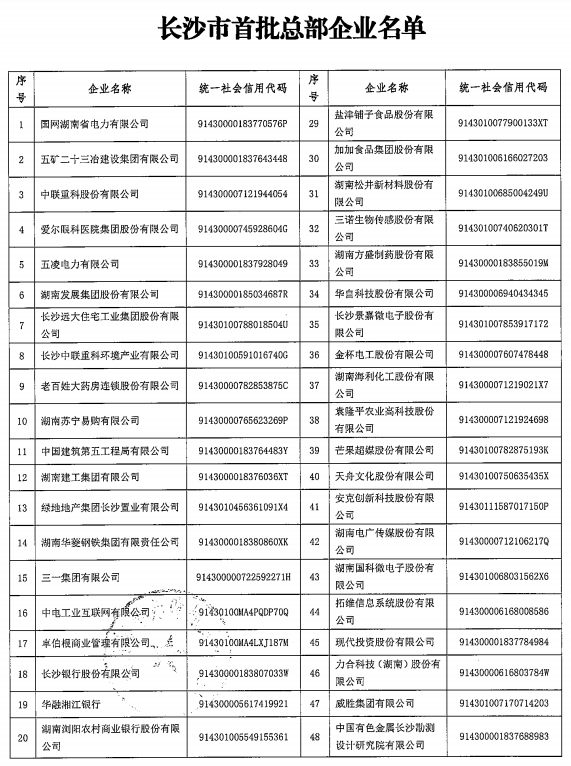 长沙市首批总部企业名单
序号 企业名称 统一社会信用代码 序号 企业名称 统一社会信用代码
1 国网湖南省电力有限公司 91430000183770576P 29 盐津铺子食品股份有限公司 9143010077900133XT
2 五矿二十三冶建设集团有限公司 914300001837643448 30 加加食品集团股份有限公司 914301006166027203
3 中联重科股份有限公司 914300007121944054 31 湖南松井新材料股份有限公司 91430100685004249U
4 爱尔眼科医院集团股份有限公司 91430000745928604G 32 三诺生物传感股份有限公司 91430100740620301T
5 五凌电力有限公司 914300001837928049 33 湖南方盛制药股份有限公司 91430000183855019M
6 湖南发展集团股份有限公司 91430000185034687R 34 华自科技股份有限公司 914300006940434345
7 长沙远大住宅工业集团股份有限公司 91430100788018504U 35 长沙景嘉微电子股份有限公司 914301007853917172
8 长沙中联重科环境产业有限公司 91430100591016740G 36 金杯电工股份有限公司 914300007607478448
9 老百姓大药房连锁股份有限公司 91430000782853875C 37 湖南海利化工股份有限公司 9143000071219021X7
10 湖南苏宁易购有限公司 91430000765623269P 38 袁隆平农业高科技股份有限公司 914300007121924698
11 中国建筑第五工程局有限公司 91430000183764483Y 39 芒果超媒股份有限公司 91430100782875193K
12 湖南建工集团有限公司 9143000018376036XT 40 天舟文化股份有限公司 91430100750635435X
13 绿地地产集团长沙置业有限公司 9143010456361091X4 41 安克创新科技股份有限公司 91430111587017150P
14 湖南华菱钢铁集团有限责任公司 9143000018380860XK 42 湖南电广传媒股份有限公司 91430000712106217Q
15 三一集团有限公司 914300000722592271H 43 湖南国科微电子股份有限公司 9143010068031562X6
16 中电工业互联网有限公司 91430100MA4PQDP70Q 44 拓维信息系统股份有限公司 914300006168008586
17 卓伯根商业管理有限公司 91430100MA4LXJ187M 45 现代投资股份有限公司 914300001837784984
18 长沙银行股份有限公司 91430000183807033W 46 力合科技（湖南）股份有限公司 91430000616803784W
19 华融湘江银行 914300005617419921 47 威胜集团有限公司 914301007170714203
20 湖南浏阳农村商业银行股份有限公司 914301005549155361 48 中国有色金属长沙勘测设计研究院有限公司 914300001837688983